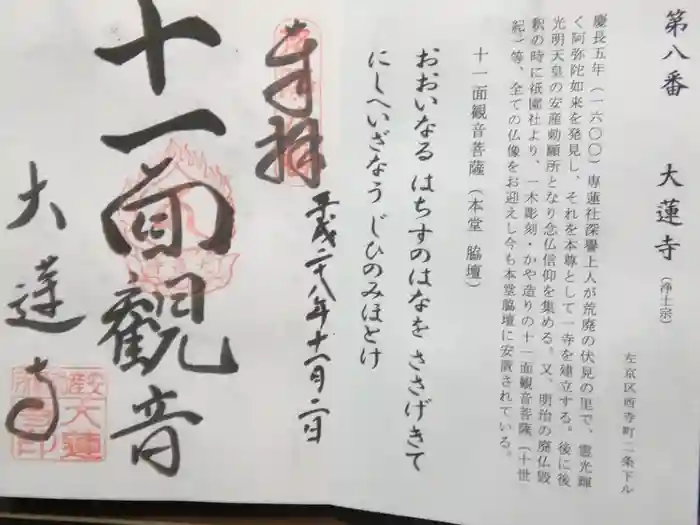 第八番 大蓮寺(浄土宗)
左京区西寺町二条下ル
慶長五年(一六〇〇)専蓮社深譽上人が荒廃の伏見の里で、霊光輝
く阿弥陀如来を発見し、それを本尊として一寺を建立する。後に後
光明天皇の安産勅願所となり念仏信仰を集める。又、明治の廃仏毀
釈の時に祇園社より、一木彫刻・かや造りの十一面観音菩薩(十世
紀)等、全ての仏像をお迎えし今も本堂脇壇に安置されている。
十一面観音菩薩(本堂 脇壇)
おおいなる はちすのはなを ささげきて
にしへいざなう じひのみほとけ
奉拝
平成二十八年十一月二日
十一面観音
大蓮寺
安産
大蓮